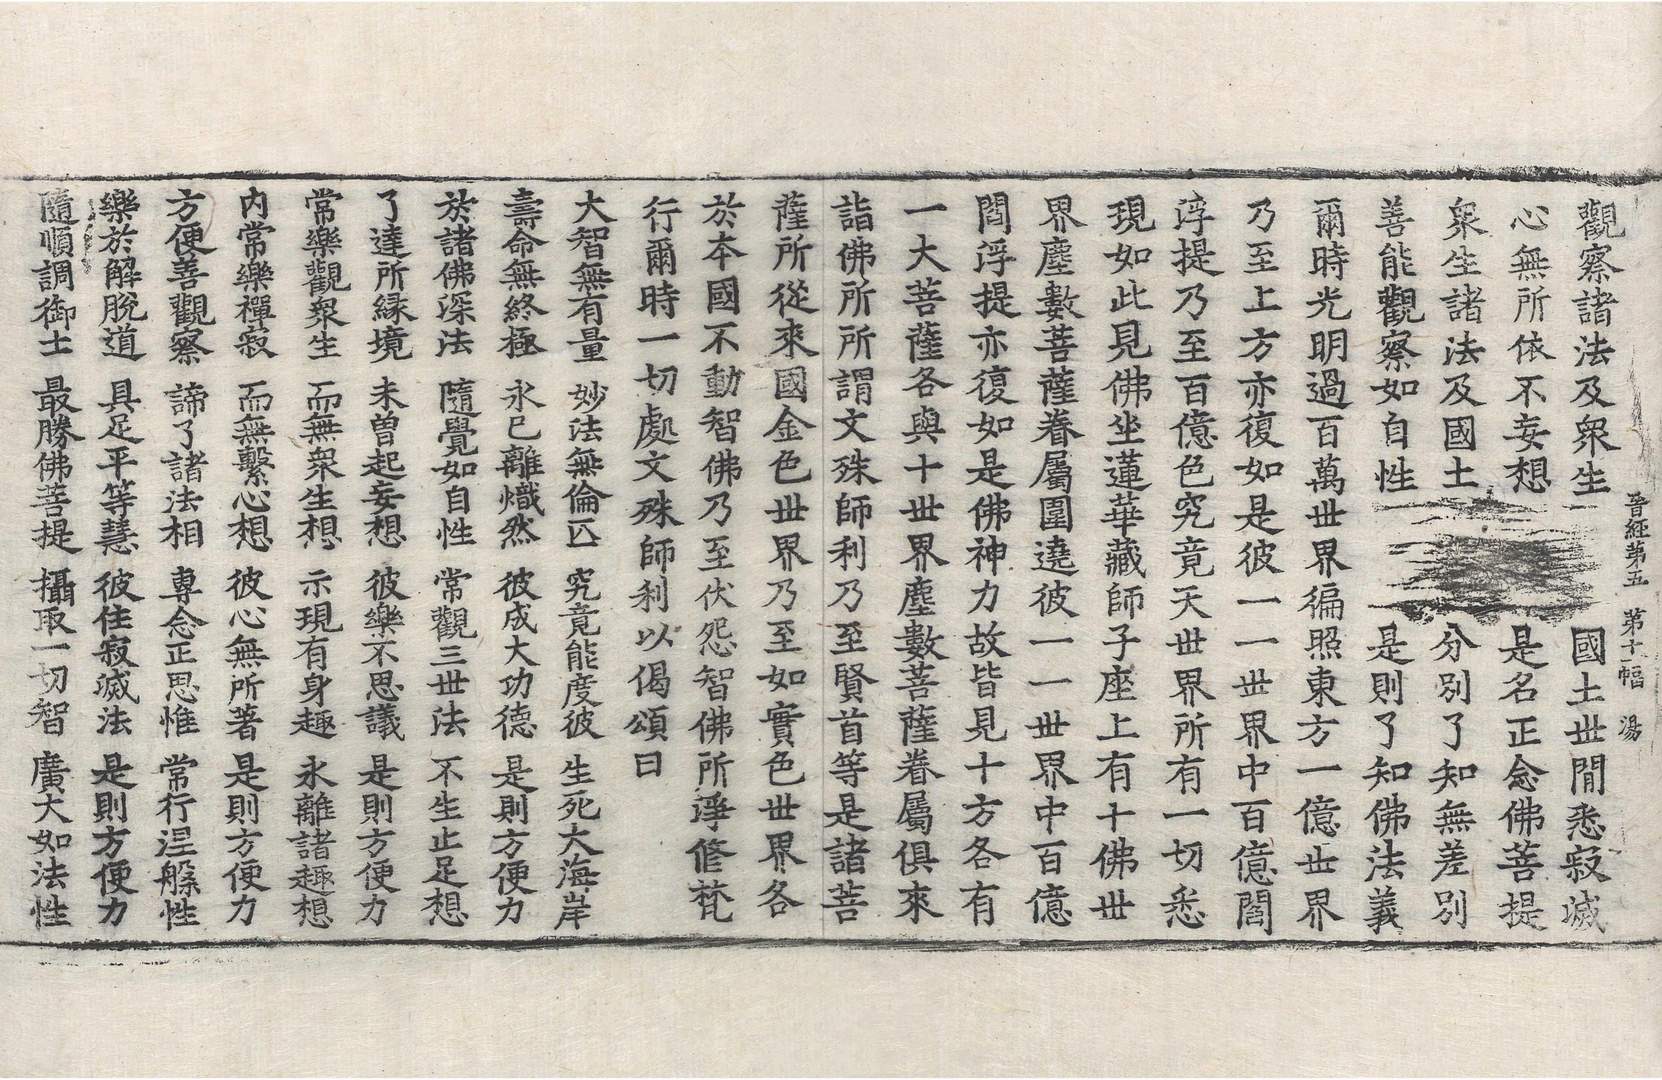 晉經第五　第十一幅　湯
觀察諸法及衆生　國土世閒悉寂滅
心無所依不妄想　是名正念佛菩提
衆生諸法及國土　分別了知無差別
善能觀察如自性　是則了知佛法義
爾時光明過百萬世界徧照東方一億世界
乃至上方亦復如是彼一一世界中百億閻
浮提乃至百億色究竟天世界所有一切悉
現如此見佛坐蓮華藏師子座上有十佛世
界塵數菩薩眷屬圍遶彼一一世界中百億
閻浮提亦復如是佛神力故皆見十方各有
一大菩薩各與十世界塵數菩薩眷屬俱來
詣佛所所謂文殊師利乃至賢首等是諸菩
薩所從來國金色世界乃至如實色世界各
於本國不動智佛乃至伏怨智佛所淨修梵
行爾時一切處文殊師利以偈頌曰
大智無有量　妙法無倫匹　究竟能度彼　生死大海岸
壽命無終極　永已離熾然　彼成大功德　是則方便力
於諸佛深法　隨覺如自性　常觀三世法　不生止足想
了達所緣境　未曾起妄想　彼樂不思議　是則方便力
常樂觀衆生　而無衆生想　示現有身趣　永離諸趣想
內常樂禪寂　而無繫心想　彼心無所著　是則方便力
方便善觀察　諦了諸法相　專念正思惟　常行涅槃性
樂於解脫道　具足平等慧　彼住寂滅法　是則方便力
隨順調御士　最勝佛菩提　攝取一切智　廣大如法性